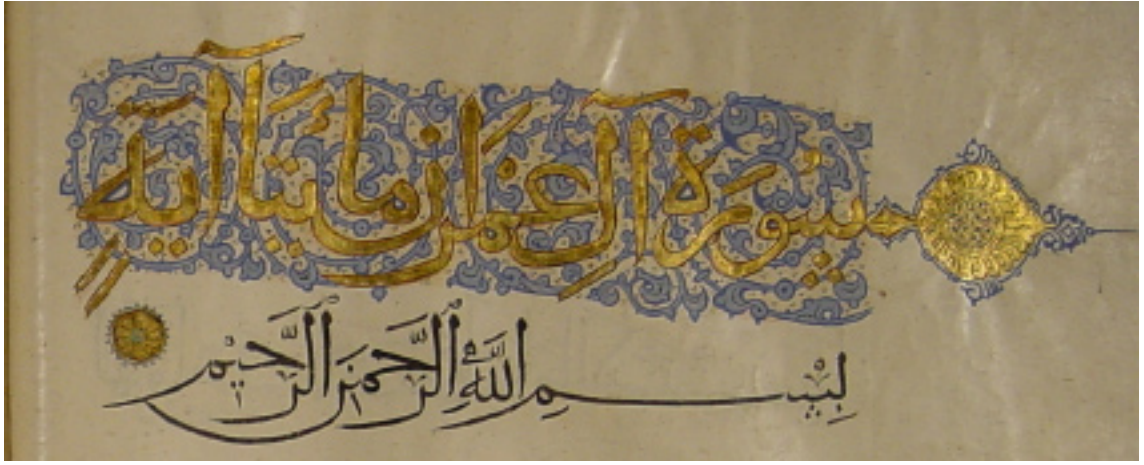 سُورَةُ آلِ عِمْرَانَ مِائَتَا آيَةٍ
بِسْمِ اللَّهِ الرَّحْمَنِ الرَّحِيمِ